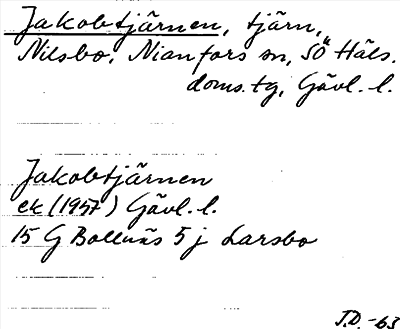 Jakobtjärnen, tjärn,
Nilsbo, Nianfors sn, SÖ Häls.
doms.tg, Gävl. l.
Jakobtjärnen
ek (1957) Gävl. l.
15 G Bollnäs 5 j Larsbo
J.D. -63